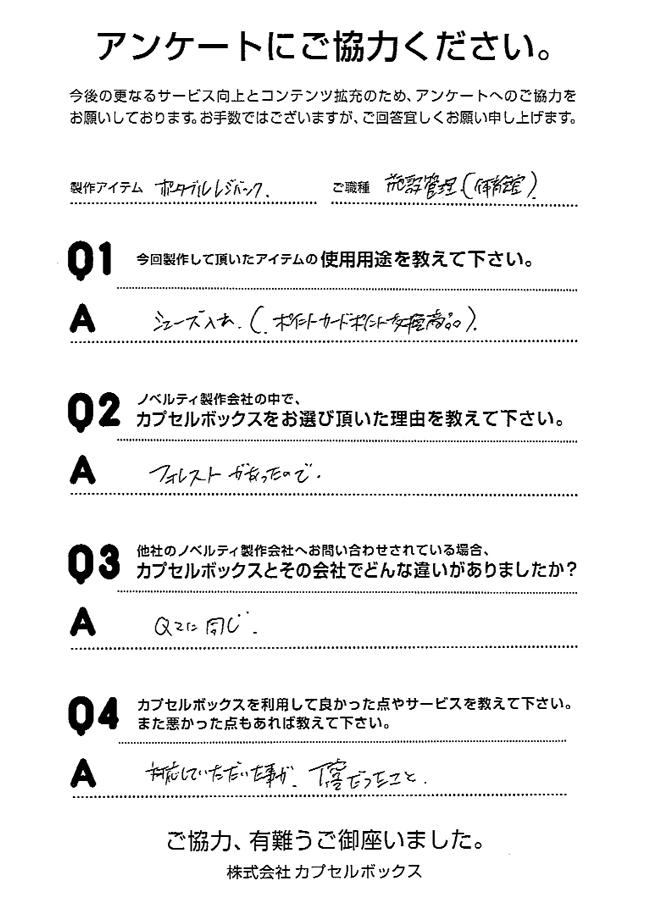 アンケートにご協力ください。
今後の更なるサービス向上とコンテンツ拡充のため、アンケートへのご協力を
お願いしております。お手数ではございますが、ご回答宜しくお願い申し上げます。
製作アイテム ポータブルレジバック. ご職種 施設管理(体育館)
Q1 今回製作して頂いたアイテムの使用用途を教えて下さい。
A シューズ入れ.(ポイントカードポイント交換商品).
Q2 ノベルティ製作会社の中で、
カプセルボックスをお選び頂いた理由を教えて下さい。
A フォレストがあったので.
Q3 他社のノベルティ製作会社へお問い合わせされている場合、
カプセルボックスとその会社でどんな違いがありましたか?
A Q2に同じ.
Q4 カプセルボックスを利用して良かった点やサービスを教えて下さい。
また悪かった点もあれば教えて下さい。
A 対応していただいた事が. だったこと.
ご協力、有難うご御座いました。
株式会社 カプセルボックス